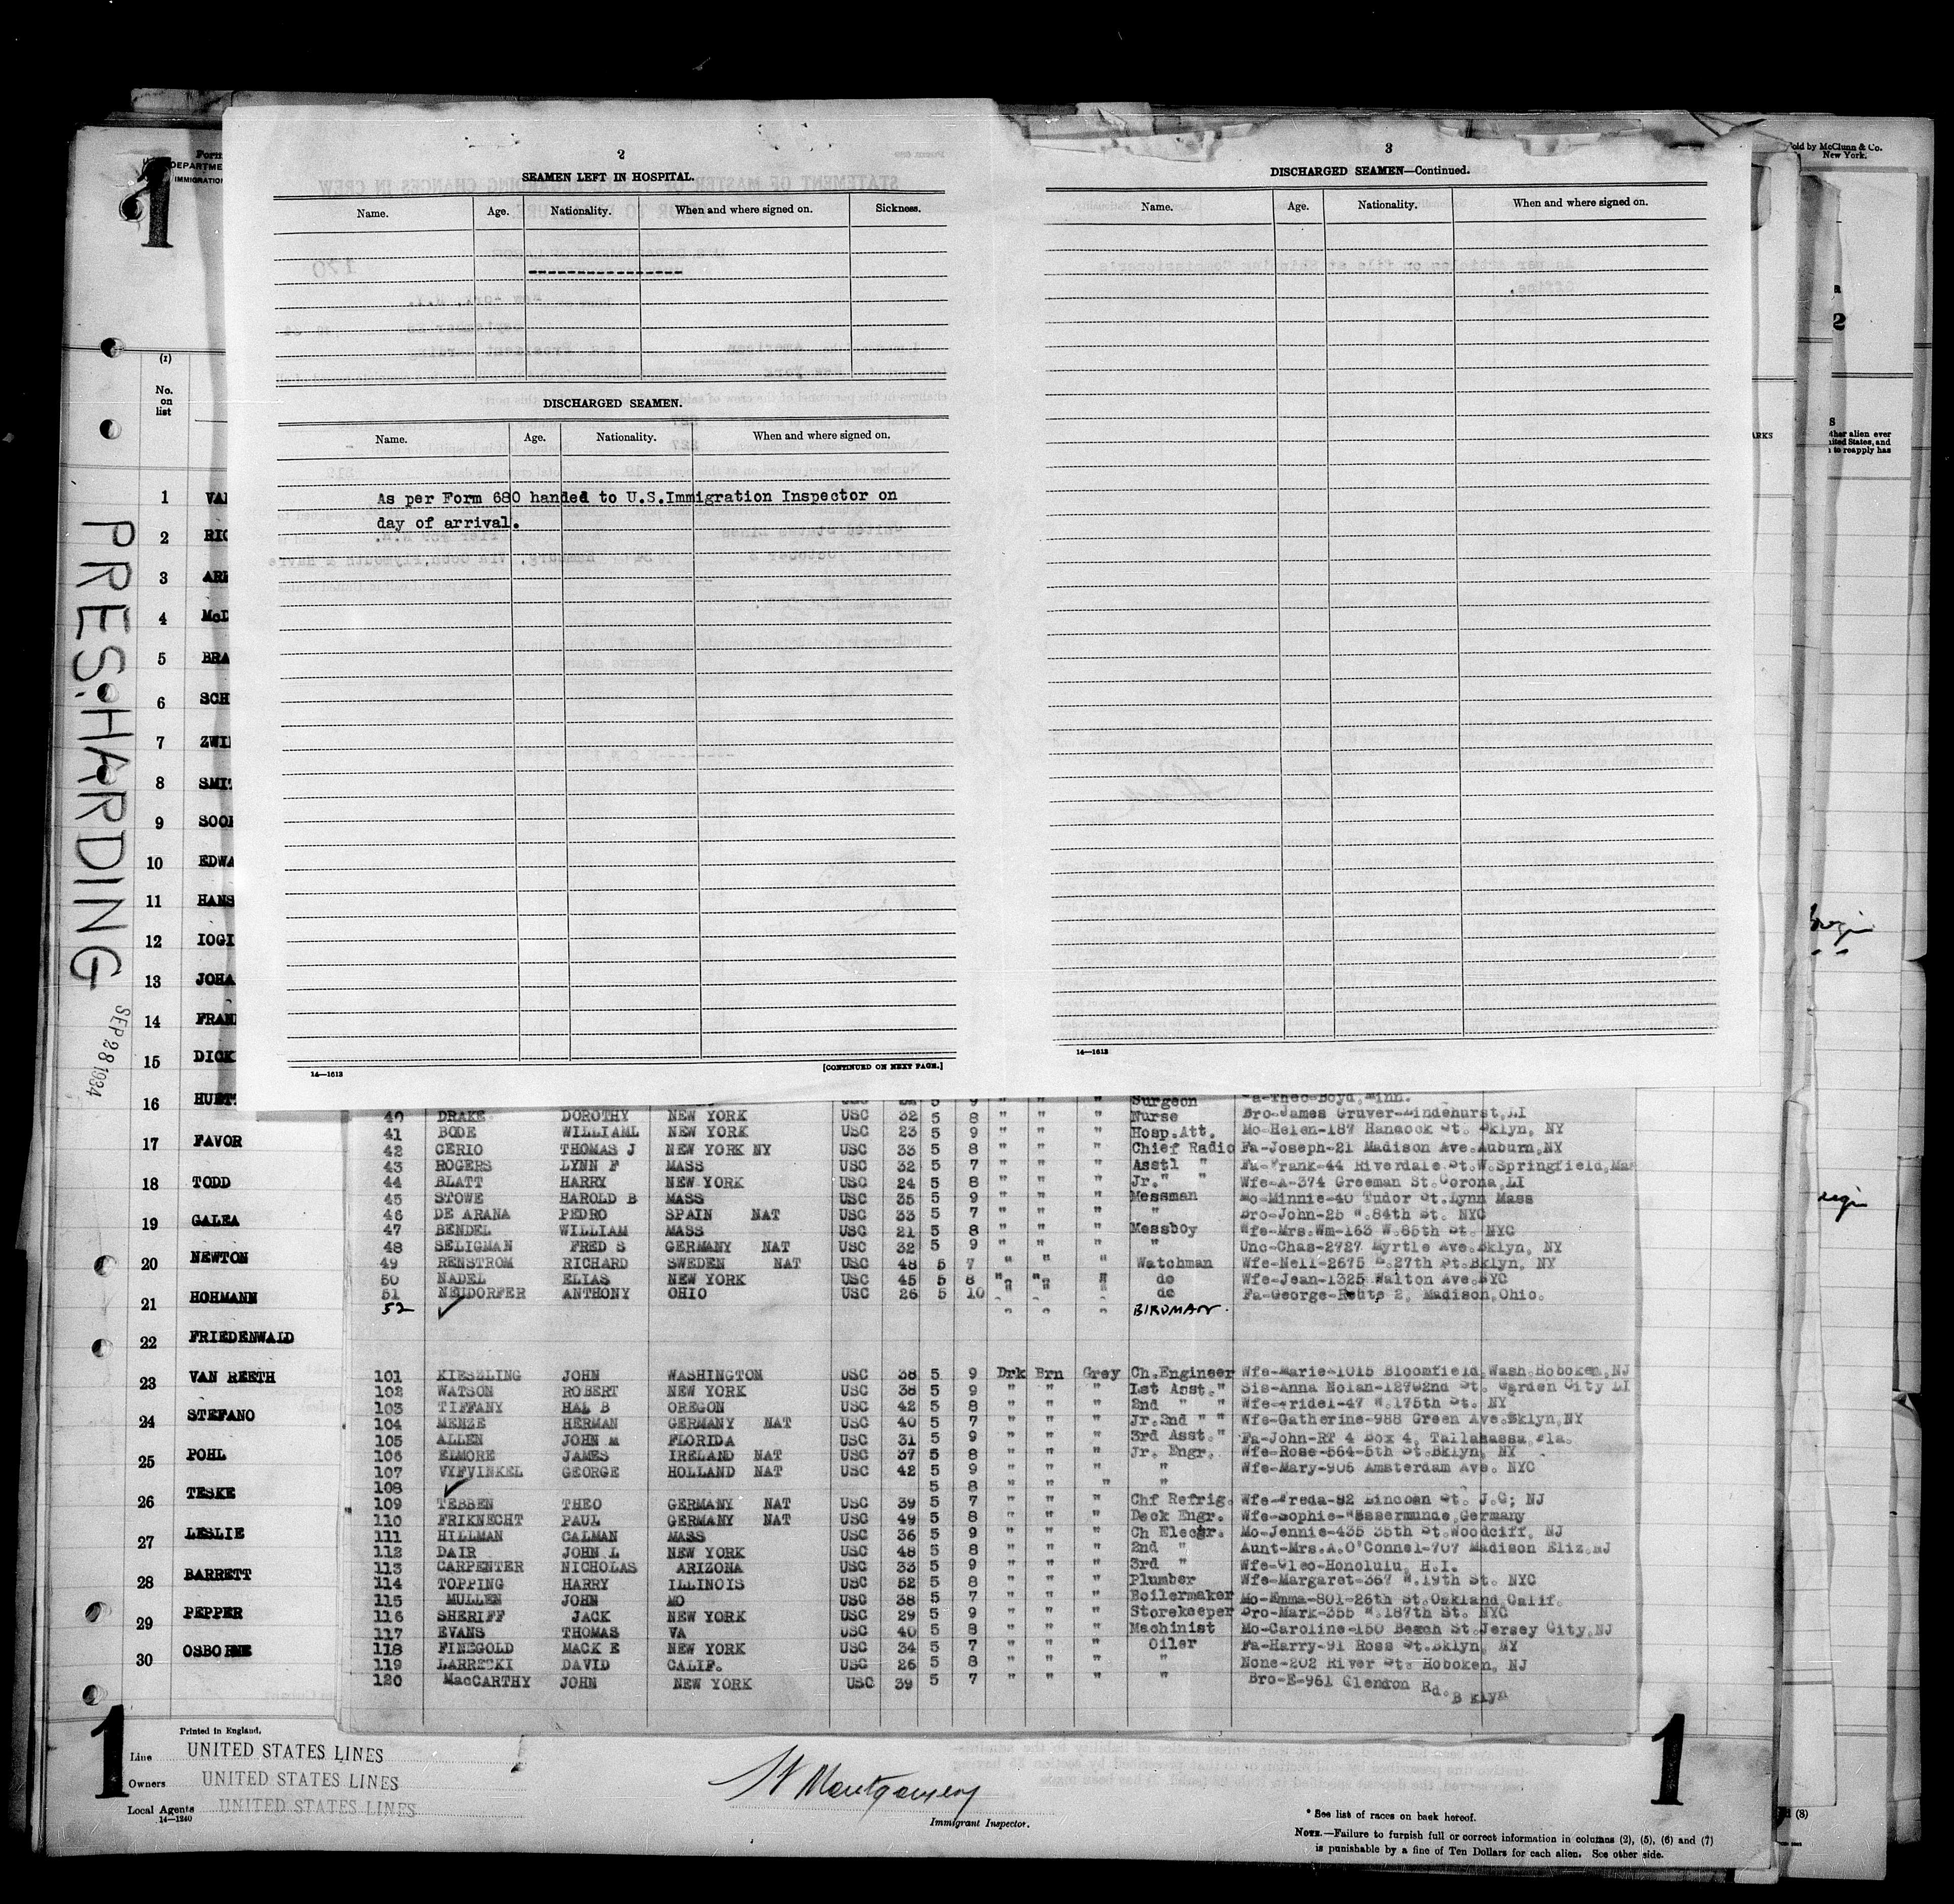 Form
DEPARTME
IMMIGRATION
1
(1)
No.
on
list
PRES. HARDING
SEP 28 1934
2
SEAMEN LEFT IN HOSPITAL.
Name. Age. Nationality. When and where signed on. Sickness.
DISCHARGED SEAMEN.
Name. Age. Nationality. When and where signed on.
As per Form 680 handed to U.S.Immigration Inspector on
day of arrival.
14—1613 [CONTINUED ON NEXT PAGE.]
3
DISCHARGED SEAMEN—Continued.
Name. Age. Nationality. When and where signed on.
14—1613
old by McClunn & Co.
New York.
2
ARKS
ther alien ever
ited States, and
to reapply has
1 VAN
2 RIC
3 ARE
4 McD
5 BRA
6 SCH
7 ZWI
8 SMIT
9 SOOK
10 EDWA
11 HANS
12 IOGI
13 JOHA
14 FRAN
15 DICK
16 HUETT
17 FAVOR
18 TODD
19 GALEA
20 NEWTON
21 HOHMANN
22 FRIEDENWALD
23 VAN REETH
24 STEFANO
25 POHL
26 TESKE
27 LESLIE
28 BARRETT
29 PEPPER
30 OSBORNE
5 9 " " " Surgeon Fa-Theo-Boyd, Minn.
40 DRAKE DOROTHY NEW YORK USC 32 5 8 " " " Nurse Bro-James Gruver-Lindehurst,LI
41 BODE WILLIAML NEW YORK USC 23 5 9 " " " Hosp.Att. Mo-Helen-187 Hancock St. Bklyn, NY
42 CERIO THOMAS J NEW YORK NY USC 33 5 8 " " " Chief Radio Fa-Joseph-21 Madison Ave.Auburn,NY
43 ROGERS LYNN F MASS USC 32 5 7 " " " Asstl " Fa-Frank-44 Riverdale St.W.Springfield,Mas
44 BLATT HARRY NEW YORK USC 24 5 8 " " " Jr." " Wfe-A-374 Greeman St.Corona,LI
45 STOWE HAROLD B MASS USC 35 5 9 " " " Messman Mo-Minnie-40 Tudor St.Lynn Mass
46 DE ARANA PEDRO SPAIN NAT USC 33 5 7 " " " " Bro-John-25 W.84th St. NYC
47 BENDEL WILLIAM MASS USC 21 5 8 " " " Messboy Wfe-Mrs.Wm-163 W.85th St. NYC
48 SELIGMAN FRED S GERMANY NAT USC 32 5 9 " " " " Unc-Chas-2727 Myrtle Ave.Bklyn, NY
49 RENSTROM RICHARD SWEDEN NAT USC 48 5 7 " " " Watchman Wfe-Nell-2675 E.27th St.Bklyn, NY
50 NADEL ELIAS NEW YORK USC 45 5 8 " " " do Wfe-Jean-1325 Walton Ave.NYC
51 NEUDORFER ANTHONY OHIO USC 26 5 10 " " " do Fa-George-Route 2, Madison,Ohio.
52 " " " BIRDMAN.
101 KIESELING JOHN WASHINGTON USC 38 5 9 Drk Brn Grey Ch.Engineer Wfe-Marie-1015 Bloomfield,Wash.Hoboken,NJ
102 WATSON ROBERT NEW YORK USC 38 5 9 " " " 1st Asst." Sis-Anna Nolan-12792nd St. Garden City LI
103 TIFFANY HAL B OREGON USC 42 5 8 " " " 2nd " " Wfe-Fridel-47 W.175th St. NY
104 MENZE HERMAN GERMANY NAT USC 40 5 7 " " " Jr.2nd " " Wfe-Gatherine-988 Green Ave.Bklyn,NY
105 ALLEN JOHN M FLORIDA USC 31 5 9 " " " 3rd Asst." Fa-John-RT 4 Box 4, Tallahassa,Fla.
106 ELMORE JAMES IRELAND NAT USC 37 5 8 " " " Jr. Engr. Wfe-Rose-564-5th St.Bklyn, NY
107 VYFVINKEL GEORGE HOLLAND NAT USC 42 5 9 " " " " Wfe-Mary-905 Amsterdam Ave. NYC
108 5 8 " " " "
109 TEBBEN THEO GERMANY NAT USC 39 5 7 " " " Chf Refrig. Wfe-Freda-92 Lincoan St. J.C; NJ
110 FRIKNECHT PAUL GERMANY NAT USC 49 5 8 " " " Deck Engr. Wfe-Sophie-Wessermunde,Germany
111 HILLMAN CALMAN MASS USC 36 5 9 " " " Ch Elecgr. Mo-Jennie-435 35th St.Woodciff, NJ
112 DAIR JOHN L NEW YORK USC 48 5 8 " " " 2nd " Aunt-Mrs.A.O'Connel-707 Madison Eliz.NJ
113 CARPENTER NICHOLAS ARIZONA USC 33 5 9 " " " 3rd " Wfe-Cleo-Honolulu, H.I.
114 TOPPING HARRY ILLINOIS USC 52 5 8 " " " Plumber Wfe-Margaret-367 W.19th St. NYC
115 MULLEN JOHN MO USC 38 5 7 " " " Boilermaker Mo-Emma-801-26th St.Oakland,Calif.
116 SHERIFF JACK NEW YORK USC 29 5 9 " " " Storekeeper Bro-Mark-355 W.187th St. NYC
117 EVANS THOMAS VA USC 40 5 8 " " " Machinist Mo-Caroline-150 Beach St.Jersey City,NJ
118 FINEGOLD MACK E NEW YORK USC 34 5 7 " " " Oiler Fa-Harry-91 Ross St.Bklyn, NY
119 LABRECKI DAVID CALIF. USC 26 5 8 " " " " None-202 River St. Hoboken, NJ
120 MacCARTHY JOHN NEW YORK USC 39 5 7 " " " " Bro-E-961 Glendon Rd. B klyn
1
Printed in England.
Line UNITED STATES LINES
Owners UNITED STATES LINES
Local Agents UNITED STATES LINES
14—1240
Montgomery
Immigrant Inspector.
1
* See list of races on back hereof.
NOTE.—Failure to furnish full or correct information in columns (2), (5), (6) and (7)
is punishable by a fine of Ten Dollars for each alien. See other side.
(8)